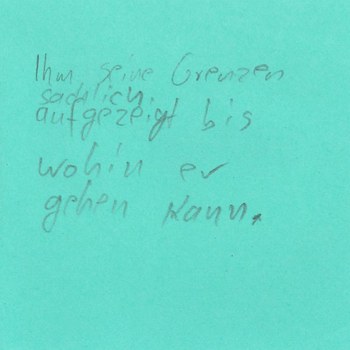 Ihm seine Grenzen
sachlich
aufgezeigt bis
wohin er
gehen kann.